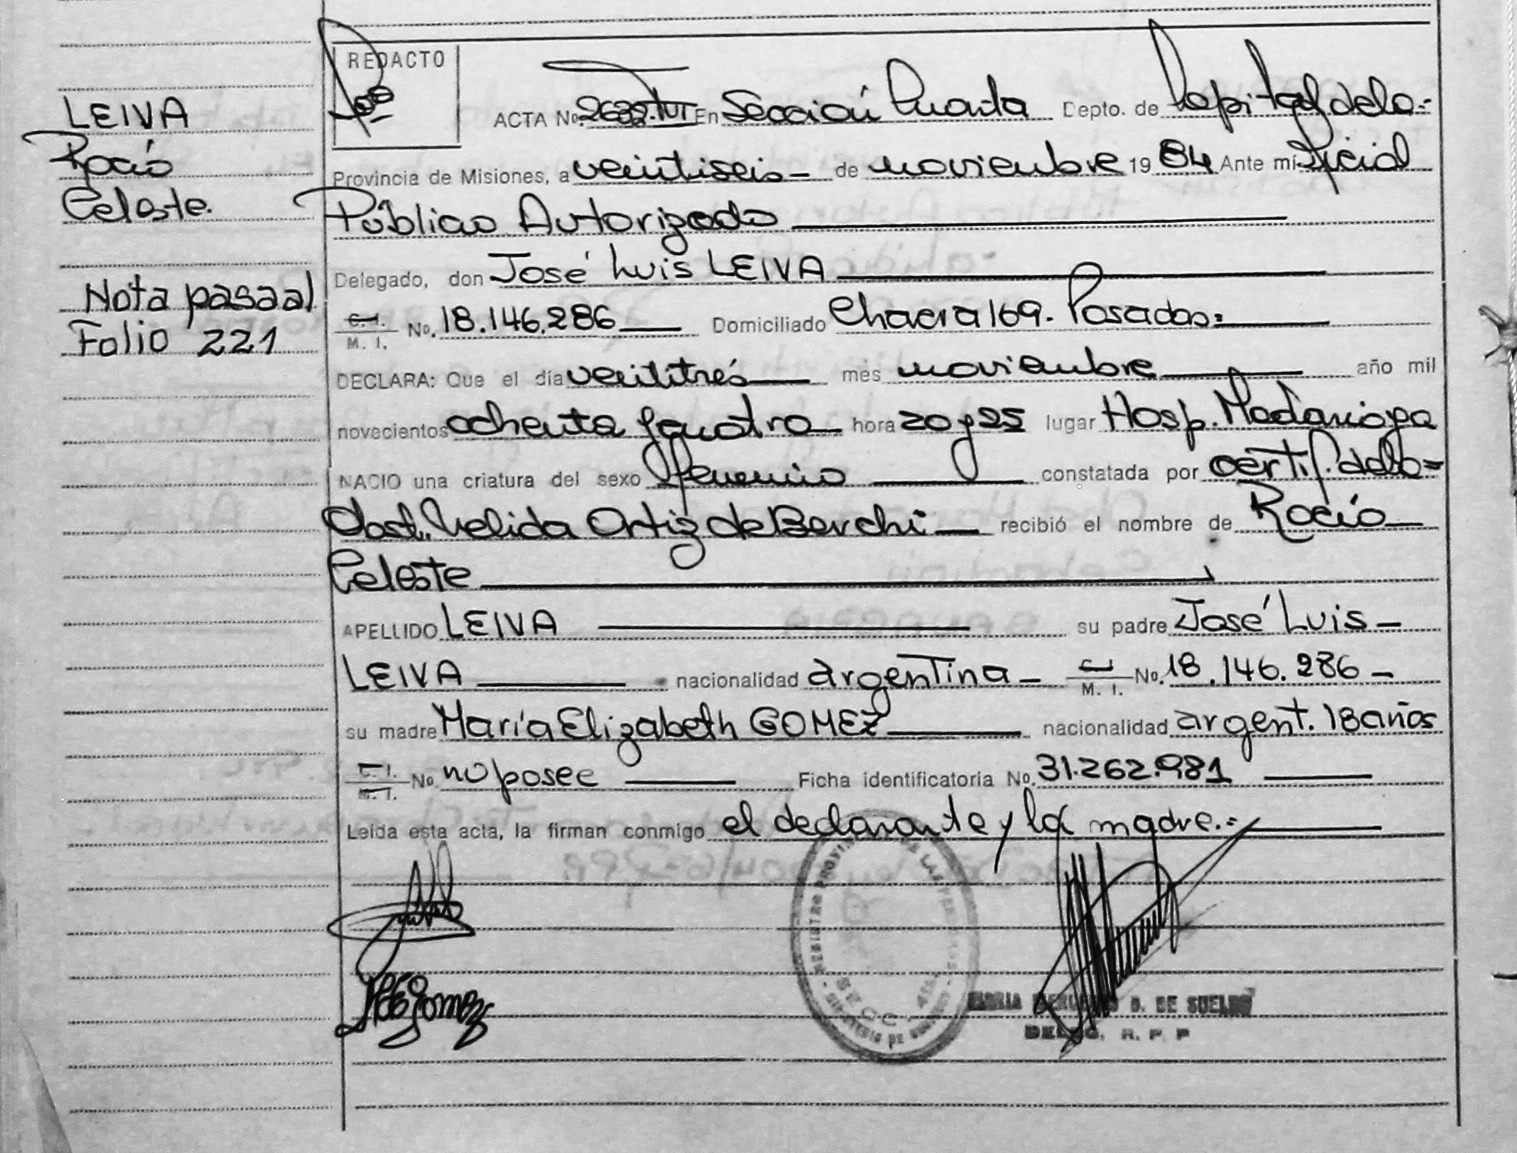 LEIVA
Rocío
Celeste.
Nota pasa al
Folio 221
REDACTO
ACTA No. En Sección Cuarta Depto. de Capital de la=
Provincia de Misiones, a veintiseis — de noviembre 1984 Ante mí Oficial
Público Autorizado
Delegado, don José Luis LEIVA
C.I. M. I. No. 18.146.286 Domiciliado Chacra 169. Posadas=
DECLARA: Que el día veintitrés mes noviembre año mil
novecientos ochenta y cuatro hora 20 y 25 lugar Hosp. Madariaga
NACIO una criatura del sexo femenino constatada por certif. de la=
Obst. Nelida Ortiz de Berchi — recibió el nombre de Rocío
Celeste
APELLIDO LEIVA su padre José Luis —
LEIVA nacionalidad argentina — C.I. M. I. No. 18.146.286 —
su madre María Elizabeth GOMEZ nacionalidad argent. 18 años
C.I. M. I. No no posee Ficha identificatoria No. 31.262.981
Leída esta acta, la firman conmigo el declarante y la madre.=
Gomez
REGISTRO PROVINCIAL DE LAS PERSONAS
MARIA D. DE SUELDO
DELEG. R. P. P